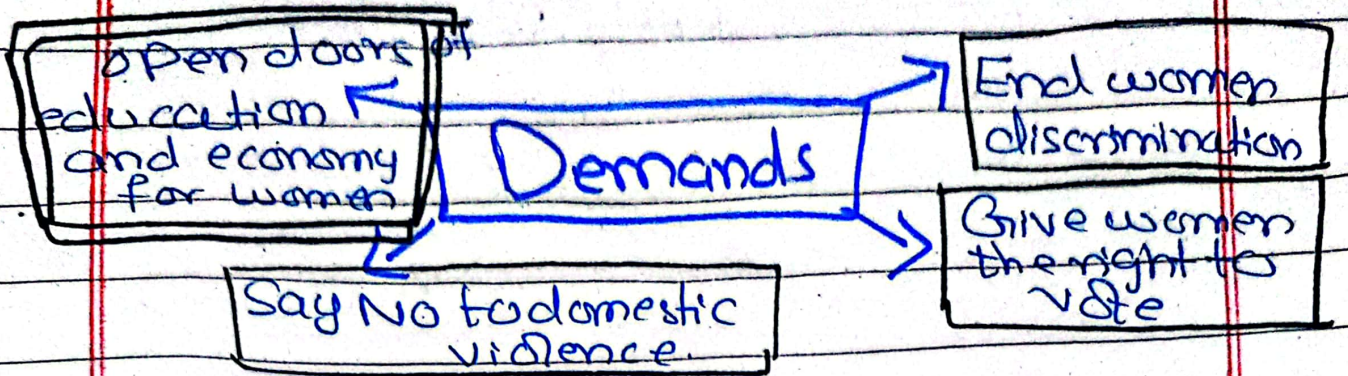 open doors of
educcation
and economy
for women
Demands
End women
discrimination
Give women
the right to
vote
Say No to domestic
violence.